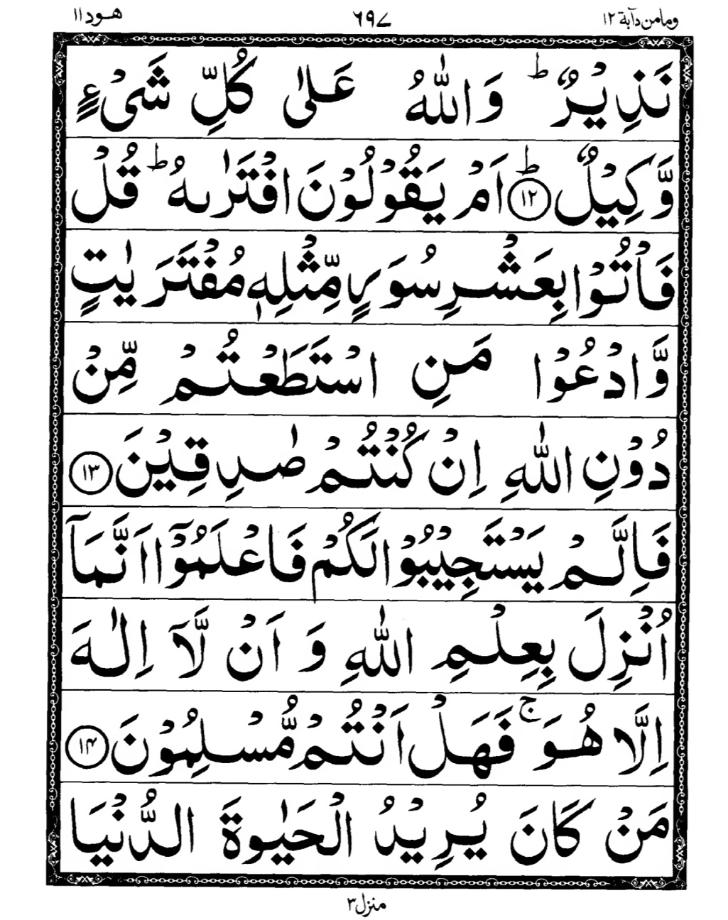 ومامن دآبة ١٢ ٦٩٧ هود ١١
نَذِيْرٌ ؕ وَاللّٰهُ عَلٰى كُلِّ شَىْءٍ
وَّكِيْلٌ ؕ ﴿١٢﴾ اَمْ يَقُوْلُوْنَ افْتَرٰىهُ ؕ قُلْ
فَاْتُوْا بِعَشْرِ سُوَرٍ مِّثْلِهٖ مُفْتَرَيٰتٍ
وَّادْعُوْا مَنِ اسْتَطَعْتُمْ مِّنْ
دُوْنِ اللّٰهِ اِنْ كُنْتُمْ صٰدِقِيْنَ ﴿١٣﴾
فَاِلَّمْ يَسْتَجِيْبُوْا لَكُمْ فَاعْلَمُوْۤا اَنَّمَاۤ
اُنْزِلَ بِعِلْمِ اللّٰهِ وَ اَنْ لَّاۤ اِلٰهَ
اِلَّا هُوَ ۚ فَهَلْ اَنْتُمْ مُّسْلِمُوْنَ ﴿١٤﴾
مَنْ كَانَ يُرِيْدُ الْحَيٰوةَ الدُّنْيَا
منزل ٣